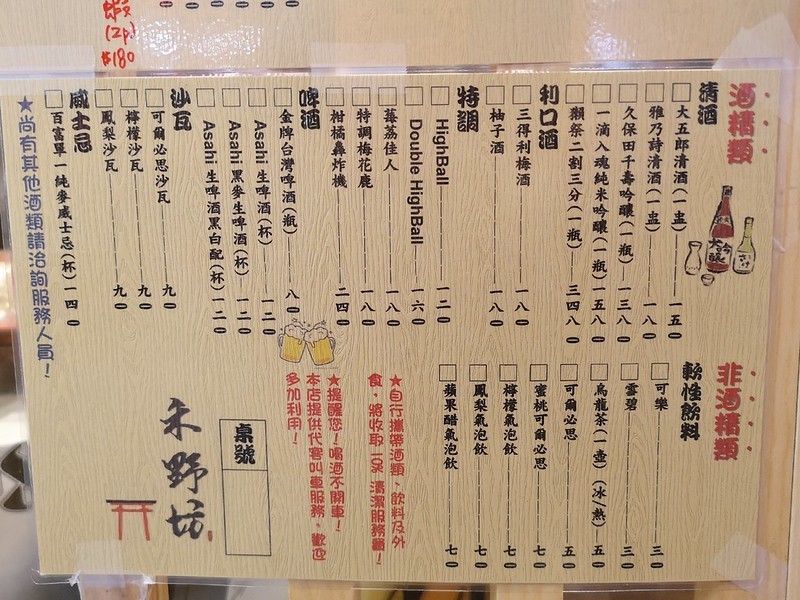 蝦
(2p)
$180
酒精類
清酒
大五郎清酒(一盅) 一五〇
雅乃詩清酒(一盅) 一八〇
久保田千壽吟釀(一瓶) 一三八〇
一滴入魂純米吟釀(一瓶) 一五八〇
獺祭二割三分(一瓶) 三四八〇
利口酒
三得利梅酒 一八〇
柚子酒 一八〇
特調
HighBall 一二〇
Double HighBall 一六〇
莓荔佳人 一八〇
特調梅花鹿 一八〇
柑橘轟炸機 二四〇
啤酒
金牌台灣啤酒(瓶) 八〇
Asahi 生啤酒(杯) 一二〇
Asahi 黑麥生啤酒(杯) 一二〇
Asahi 生啤酒黑白配(杯) 一二〇
沙瓦
可爾必思沙瓦 九〇
檸檬沙瓦 九〇
鳳梨沙瓦 九〇
威士忌
百富單一純麥威士忌(杯) 一四〇
★尚有其他酒類請洽詢服務人員!
非酒精類
軟性飲料
可樂 三〇
雪碧 三〇
烏龍茶(一壺)(冰/熱) 五〇
可爾必思 五〇
蜜桃可爾必思 七〇
檸檬氣泡飲 七〇
鳳梨氣泡飲 七〇
蘋果醋氣泡飲 七〇
★自行攜帶酒類、飲料及外
食,將收取一桌 清潔服務費!
★提醒您!喝酒不開車!
本店提供代客叫車服務,歡迎
多加利用!
桌號
禾野坊